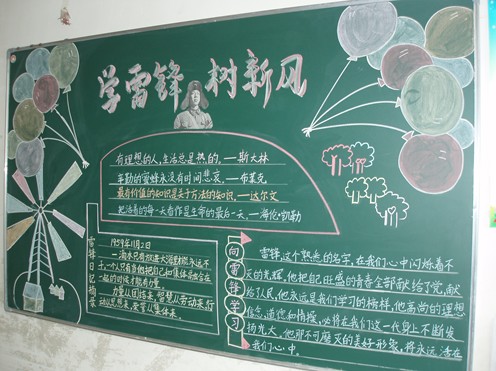 学雷锋 树新风
有理想的人,生活总是热的。——斯大林
辛勤的蜜蜂永没有时间悲哀。——布莱克
最有价值的知识是关于方法的知识。——达尔文
把活着的每一天看作是生命的最后一天。——海伦·凯勒
雷锋日记摘录
1959年11月2日
一滴水只有放进大海里才能永远不
干,一个人只有当他把自己和集体事业融合在
一起的时候才能有力量。
力量从团结来,智慧从劳动来,行
动从思想来,荣誉从集体来。
向雷锋学习
雷锋,这个熟悉的名字,在我们心中闪烁着不
灭的光辉,他把自己旺盛的青春全部献给了党,献
给了人民,他永远是我们学习的榜样,他高尚的理想
信念,道德和情操,必将在我们这一代身上不断发
扬光大,他那不可磨灭的美好形象,将永远活在
我们心中。